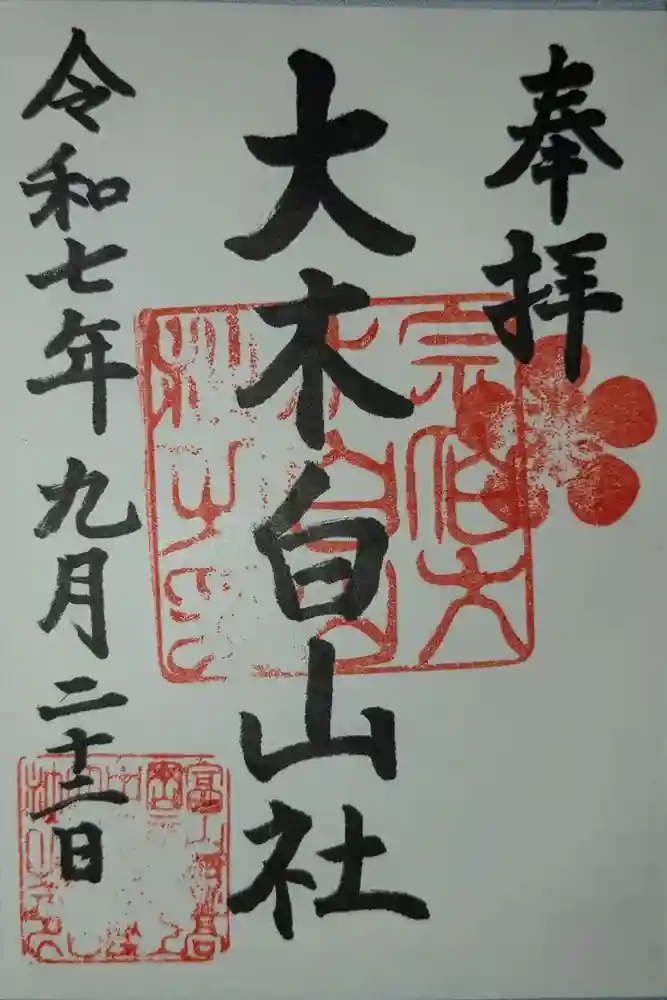 奉拝
大木白山社
令和七年九月二十二日